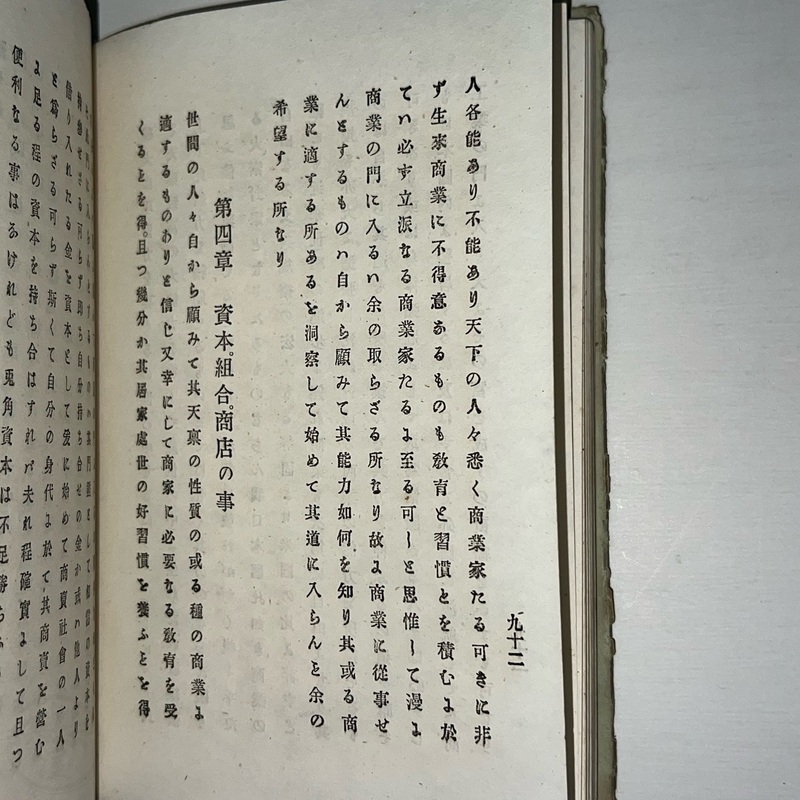 九十二
人各能あり不能あり天下の人々悉く商業家たる可きに非
ず生來商業に不得意あるものも教育と習慣とを積むよ於
てハ必ず立派なる商業家たるよ至る可しと思惟して漫よ
商業の門に入るハ余の取らざる所なり故よ商業に從事せ
んとするものハ自から顧みて其能力如何を知り其或る商
業に適する所あるを洞察して始めて其道に入らんと余の
希望する所なり
第四章 資本。組合。商店の事
世間の人々自から顧みて其天禀の性質の或る種の商業よ
適するものありと信じ又幸にして商家に必要なる教育を受
くるとを得。且つ幾分か其居家處世の好習慣を養ふとを得
借り入れたる金を資本として爰に始めて商賣社會の一人
と爲らざる可らず斯くて自分の身代よ於て其商賣を營む
よ足る程の資本を持ち合はすれバ夫れ程確實よして且つ
便利なる事はあけれども兎角資本は不足勝ち